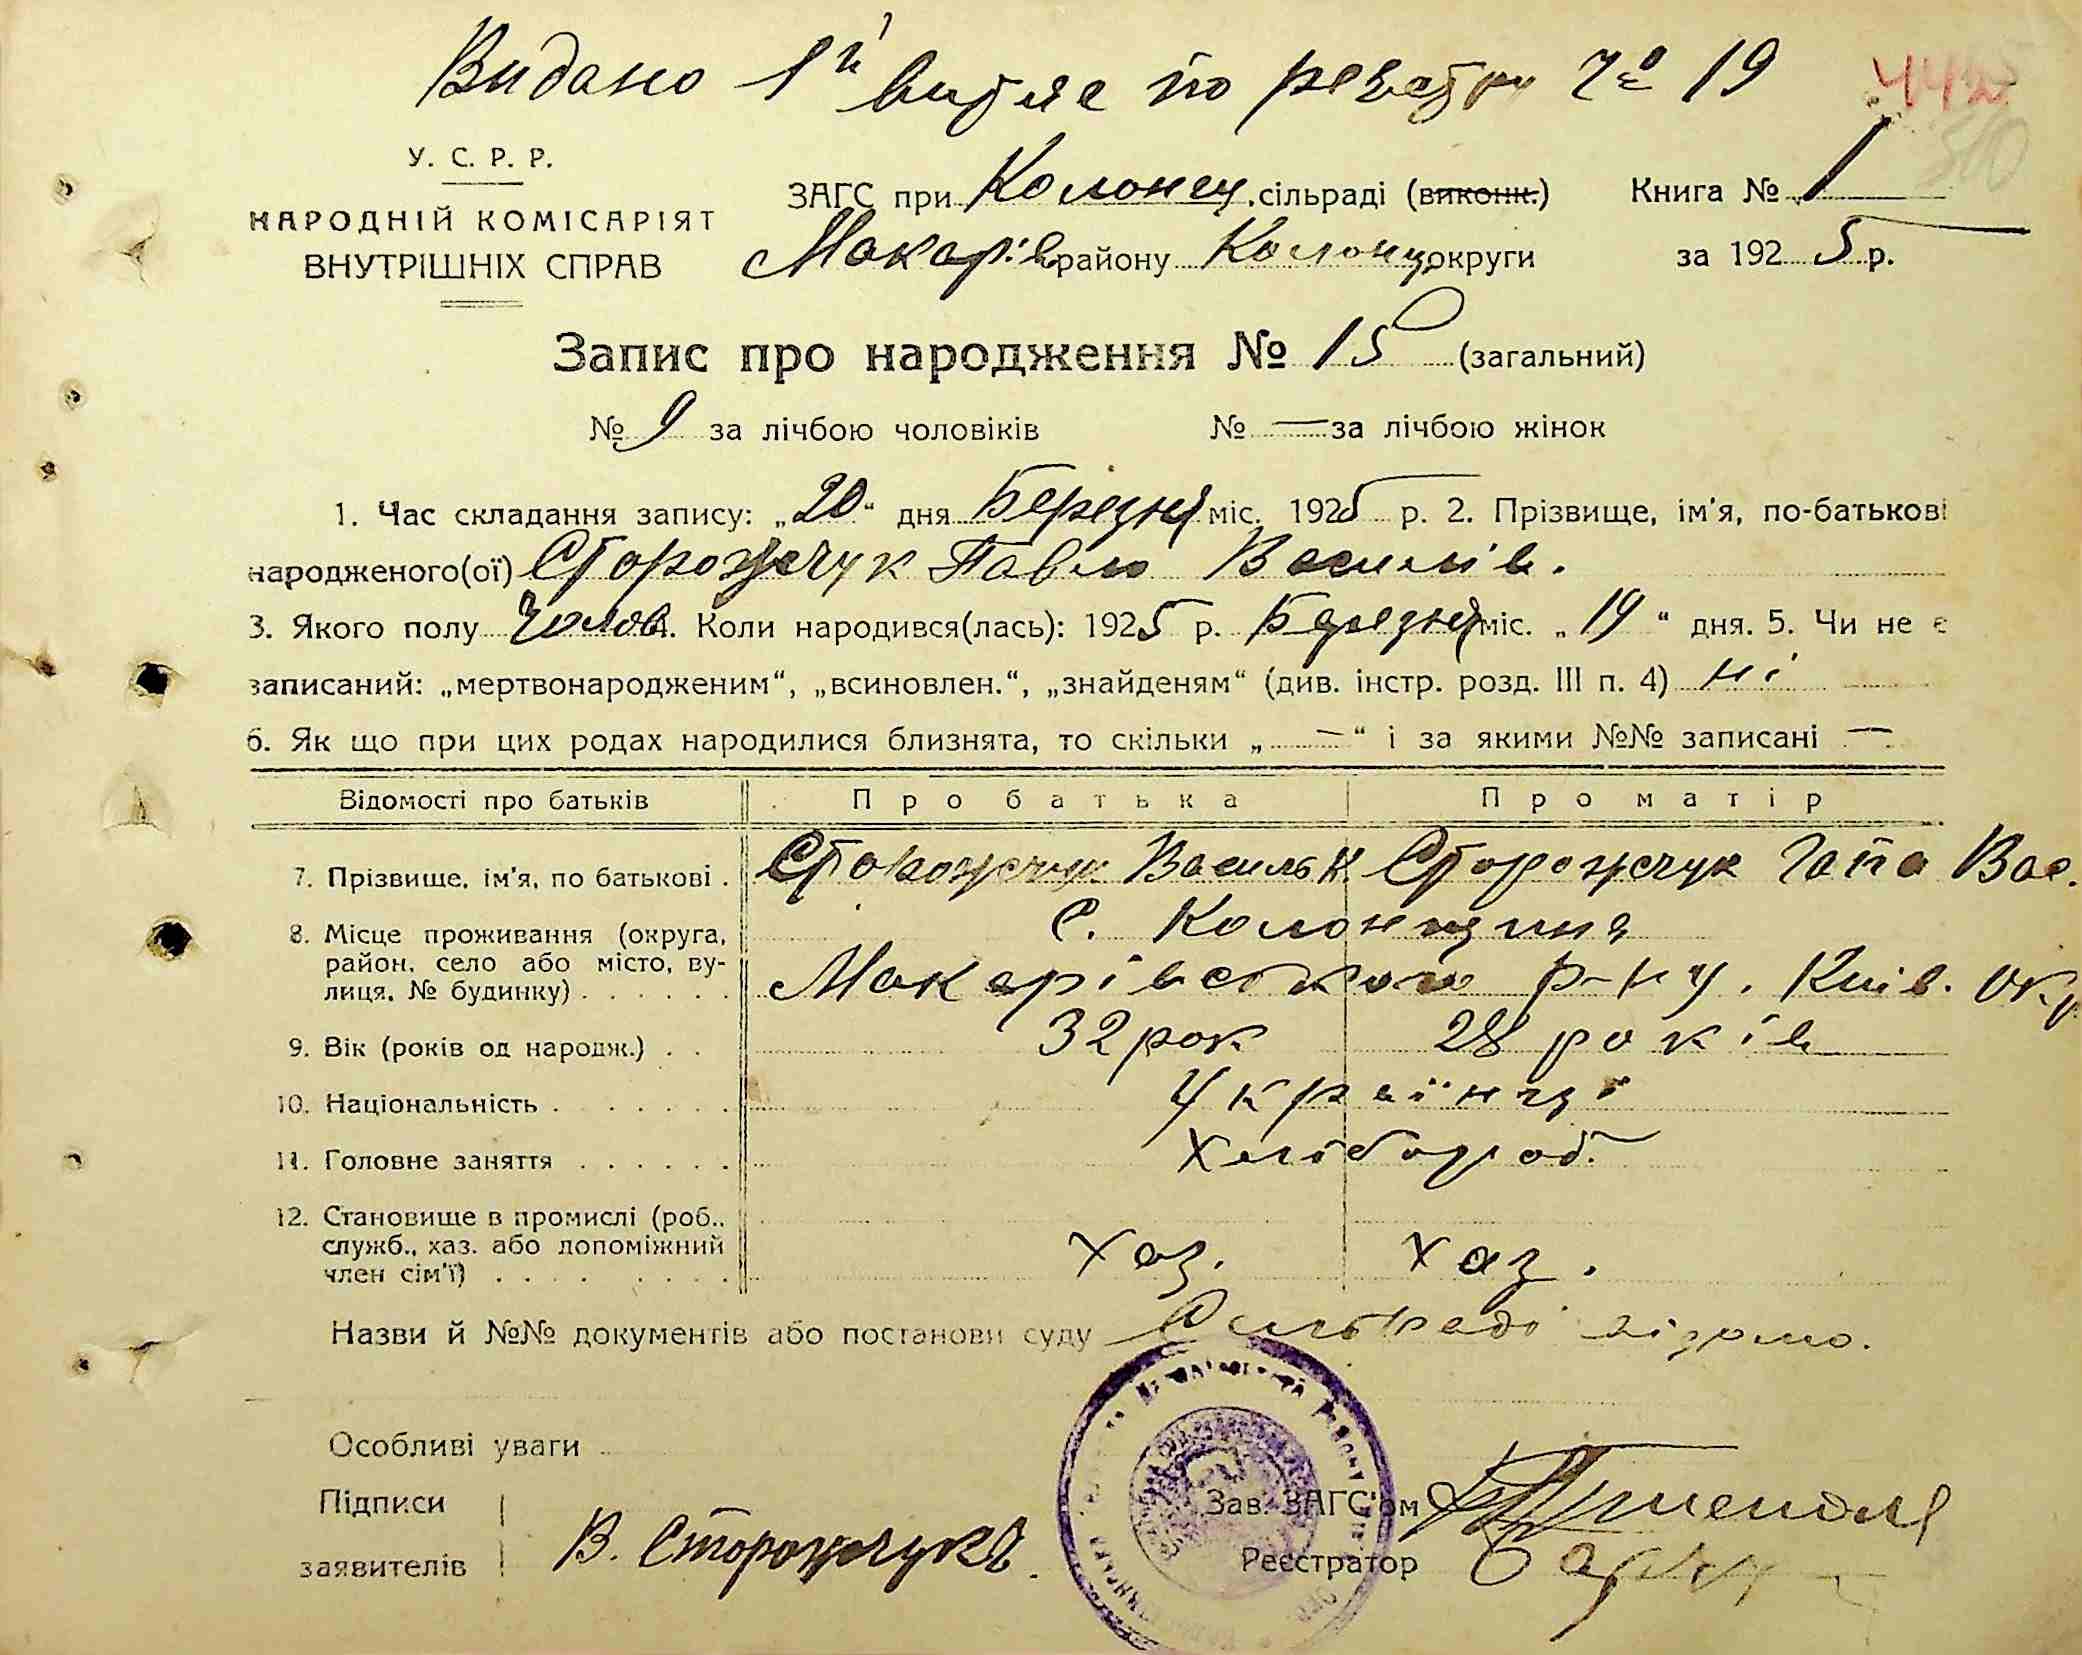 Видано 1й витяг по реєстру Чо 19
У. С. Р. Р.
НАРОДНІЙ КОМІСАРІЯТ
ВНУТРІШНІХ СПРАВ
ЗАГС при Колонщ. сільраді (виконк.) Книга № 1
Макарів району Колонщ округи за 1925 р.
Запис про народження № 15 (загальний)
№ 9 за лічбою чоловіків № — за лічбою жінок
1. Час складання запису: „20“ дня Березня міс. 1925 р. 2. Прізвище, ім'я, по-батькові
народженого(ої) Сторожчук Павло Василів.
3. Якого полу Чолов. 4. Коли народився(лась): 1925 р. Березня міс. „19“ дня. 5. Чи не є
записаний: „мертвонародженим“, „всиновлен.“, „знайденям“ (див. інстр. розд. III п. 4) ні
6. Як що при цих родах народилися близнята, то скільки „—“ і за якими №№ записані —
Відомості про батьків Про батька Про матір
7. Прізвище, ім'я, по батькові . Сторожчук Василь К. Сторожчук Гапа Вас.
8. Місце проживання (округа, район, село або місто, вулиця, № будинку) . . . . . . с. Колонщина
Макарівського р-ну. Київ. окр.
9. Вік (років од народж.) . . 32 рок 28 років
10. Національність . . . . . . . Українці
11. Головне заняття . . . . . . Хлібороб.
12. Становище в промислі (роб., служб., хаз. або допоміжний член сім'ї) . . . . . . . . хаз. хаз.
Назви й №№ документів або постанови суду Сільраді відомо.
Особливі уваги
Підписи
заявителів В. Сторожчукъ.
Зав. ЗАГС'ом
Реєстратор